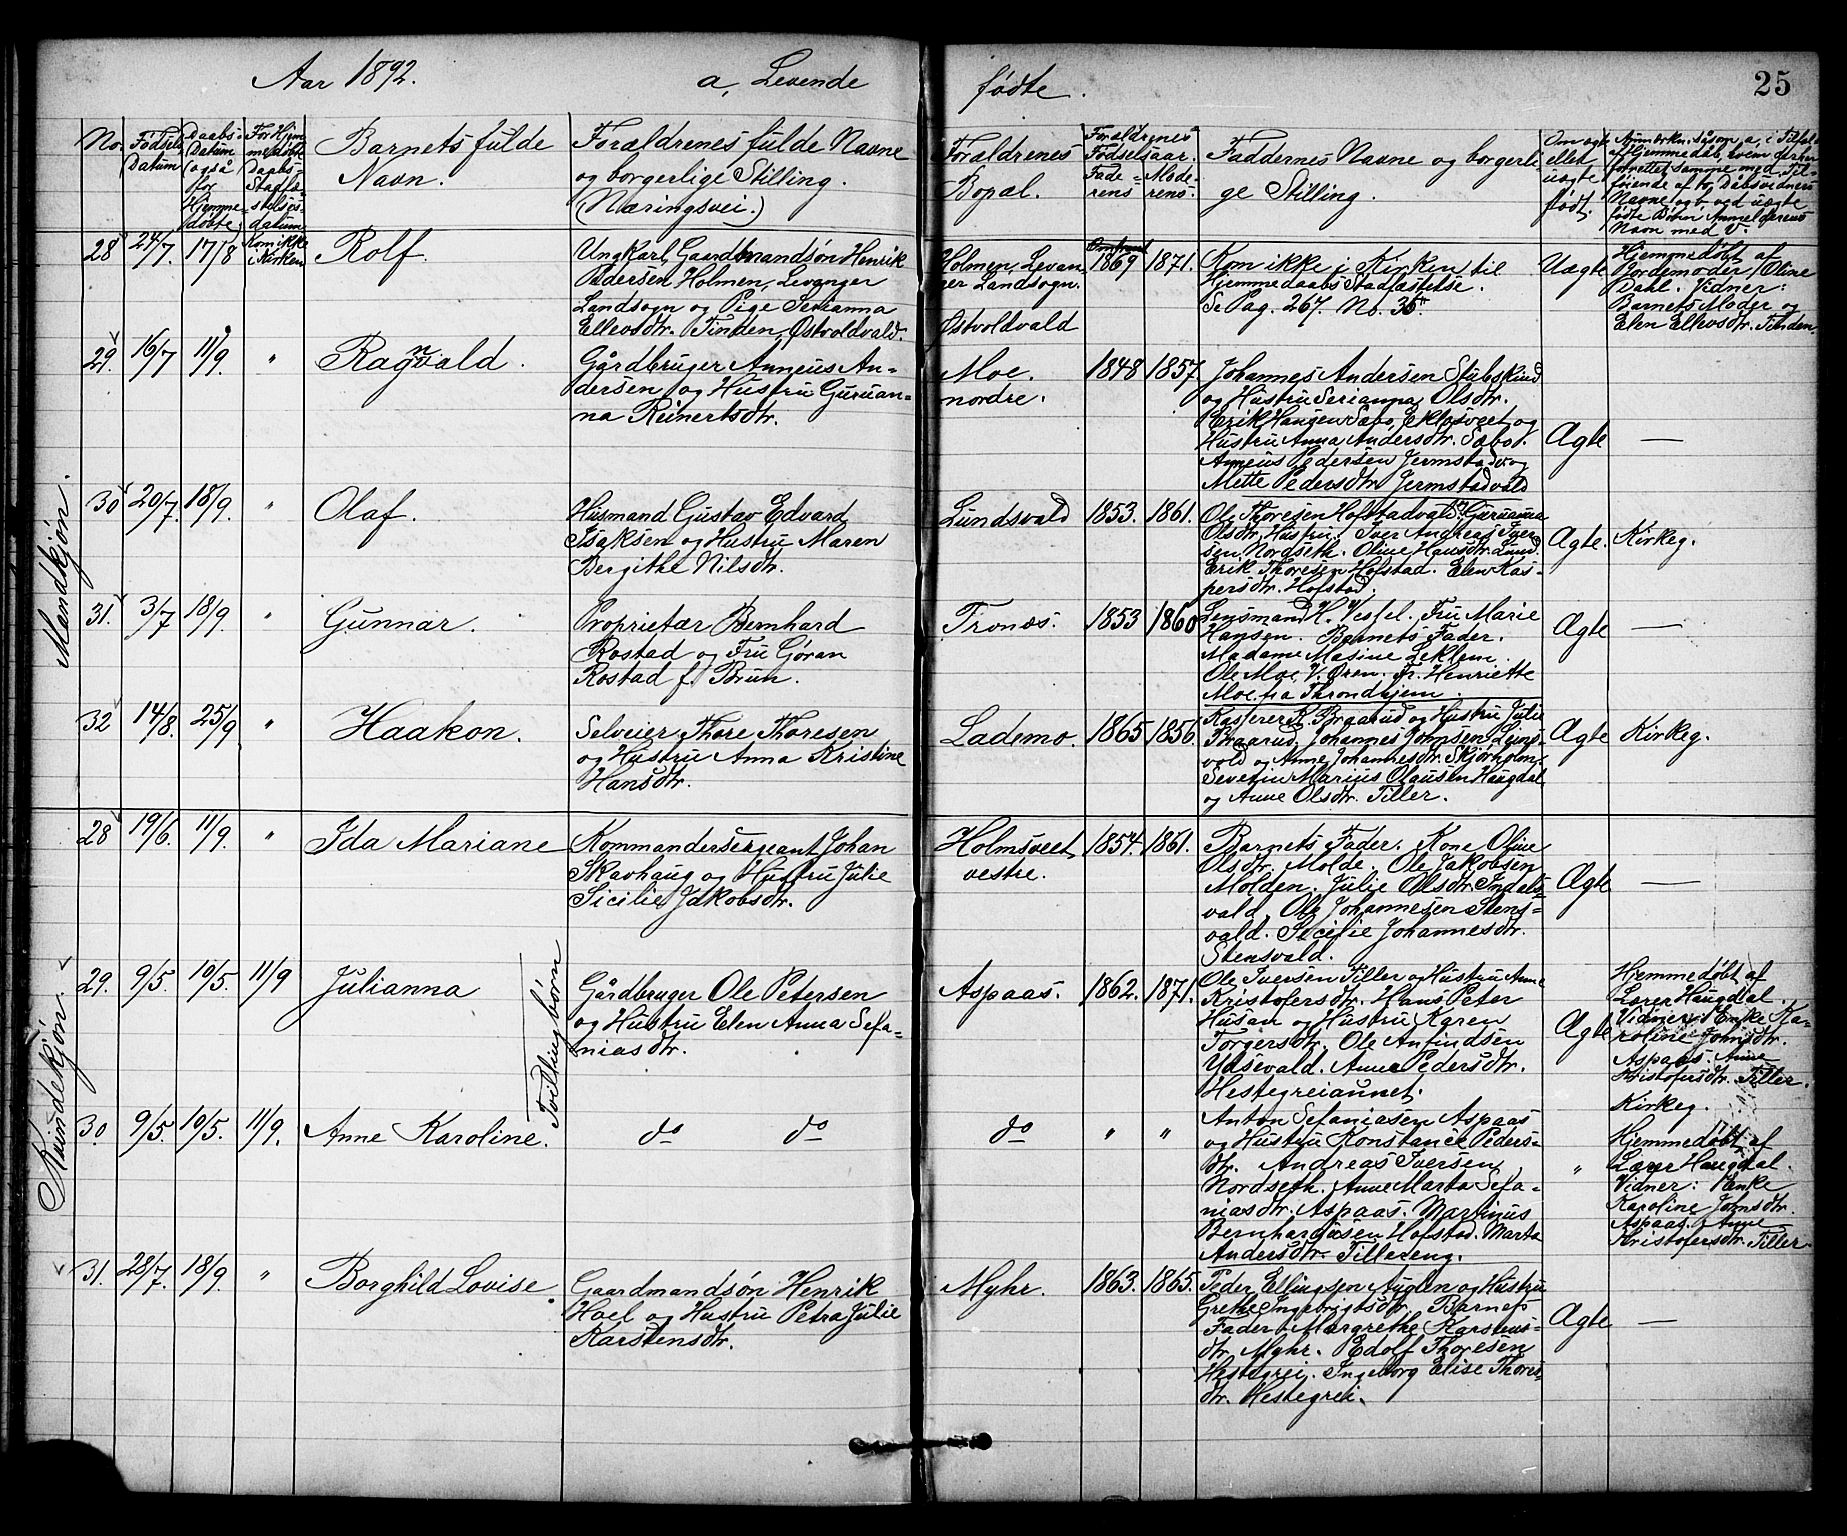 Aar 1892. a, Levende fødte. 25
No. Fødsels Datum Daabs Datum (også for Hjemmedøbte) For Hjemmedøbte Daabs-Stadfæstelsesdatum
Barnets fulde Navn.
Forældrenes fulde Navne og borgerlige Stilling. (Næringsvei.)
Forældrenes Bopæl.
Forældrenes Fødselsaar. Faderens Moderens
Faddernes Navne og borgerlige Stilling.
Om ægte eller uægte født.
Mandkjøn.
28 24/7. 17/8 Kom ikke i Kirken Rolf.
Ungkarl, Gaardmandsøn Henrik
Pedersen Holmen, Levanger
Landsogn og Pige Serianna
Ellevsdtr. Tinden, Østvoldvald.
Holmen, Levanger Landsogn.
Østvoldvald
Omtrent 1869 1871.
Kom ikke i Kirken til
Hjemmedaabs Stadfæstelse.
Se Pag. 267. No. 35.
Uægte
Hjemmedøbt af
Jordemoder Oline
Dahl. Vidner:
Barnets Moder og
Elen Ellevsdtr. Tinden
29. 16/7 11/9. " Ragnvald.
Gårdbruger Anneus An-
dersen og Hustru Guruan-
na Reinertsdtr.
Moe.
nordre.
1848 1857.
Johannes Andersen Stubskind
og Hustru Serianna Olsdr.
Erik Haugen Sabo, Eklosveet og
Hustru Anna Andersdtr. Sæbo.
Anneus Pedersen Jermstad og
Mette Pedersdtr. Jermstadvald
Ægte —
30 20/7. 18/9. " Olaf.
Husmand Gustav Edvard
Isaksen og Hustru Maren
Bergithe Nilsdtr.
Lundsvald 1853. 1861.
Ole Thoresen Hofstadvald, Guruanna
Olsdtr. Hustru. Iver Andreas Iver-
sen Nordseth. Oline Hansdtr. Lund.
Erik Thoresen Hofstad. Elen Kas-
persdtr. Hofstad.
Ægte. Kirkeg.
31. 3/7 18/9. " Gunnar.
Proprietær Bernhard
Rostad og Fru Gøran
Rostad f. Brun.
Tronæs. 1853 1860
Lensmand H. Vessel. Fru Marie
Hansen. Barnets Fader.
Madame Masine Leklem.
Ole Moe V. Øren. Fr. Henriette
Moe fra Throndhjem.
Ægte —
32 14/8. 25/9 " Haakon.
Selveier Thore Thoresen
og Hustru Anna Kristine
Hansdtr.
Lademo. 1865 1856.
Kasserer K. Braarud og Hustru Julie
Braarud. Johannes Johnsen Lyns-
vold og Anne Johannesdtr. Skjørholm.
Severin Marius Olausen Haugdal
og Anne Olsdtr. Tiller.
Ægte Kirkeg.
Kvindekjøn.
28 19/6. 11/9. " Ida Mariane
Kommandersergeant Johan
Skavhaug og Hustru Julie
Sicilie Jakobsdtr.
Holmsveet,
vestre.
1854. 1861.
Barnets Fader. Kone Oline
Olsdtr. Molde. Ole Jakobsen
Molden. Julie Olsdtr. Indals-
vald, Ole Johannesen Stens-
vald. Sicilie Johannesdtr.
Stensvald.
Ægte —
Tvillingbörn
29. 9/5. 10/5. 11/9 Julianna
Gårdbruger Ole Petersen
og Hustru Elen Anna Sefa-
niasdtr.
Aspaas. 1862. 1871.
Ole Iversen Tiller og Hustru Anne
Kristofersdtr. Hans Peter
Husan og Hustru Karen
Torgersdtr. Ole Anfindsen
Ydsevald. Anne Pedersdtr.
Hestegreiaunet.
Ægte
Hjemmedøbt af
Lærer Haugdal.
Vidner: Enke Ka-
roline Johnsdtr.
Aspaas. Anne
Kristofersdtr. Tiller.
Kirkeg.
30 9/5. 10/5. 11/9. Anne Karoline.
do do do " "
Anton Sefaniasen Aspaas
og Hustru Konstance Peders-
dtr. Andreas Iversen
Nordseth. Anne Marta Sefa-
niasdtr. Aspaas. Martinus
Bernhardusen Hofstad. Marta
Andersdtr. Tillereng.
"
Hjemmedøbt af
Lærer Haugdal.
Vidner: Enke
Karoline Johnsdtr.
Aspaas. Anne
Kristofersdtr. Tiller.
31. 28/7. 18/9. " Borghild Lovise.
Gaardmandsøn Henrik
Hoel og Hustru Petra Julie
Karstensdtr.
Myhr. 1863. 1865.
Peder Ellingsen Auglen og Hustru
Grethe Ingebrigtsdtr. Barnets
Fader. Margrethe Karstens-
dtr. Myhr. Edolf Thoresen
Hestegrei. Ingeborg Elise Thores-
dtr. Hestegrei.
Ægte —